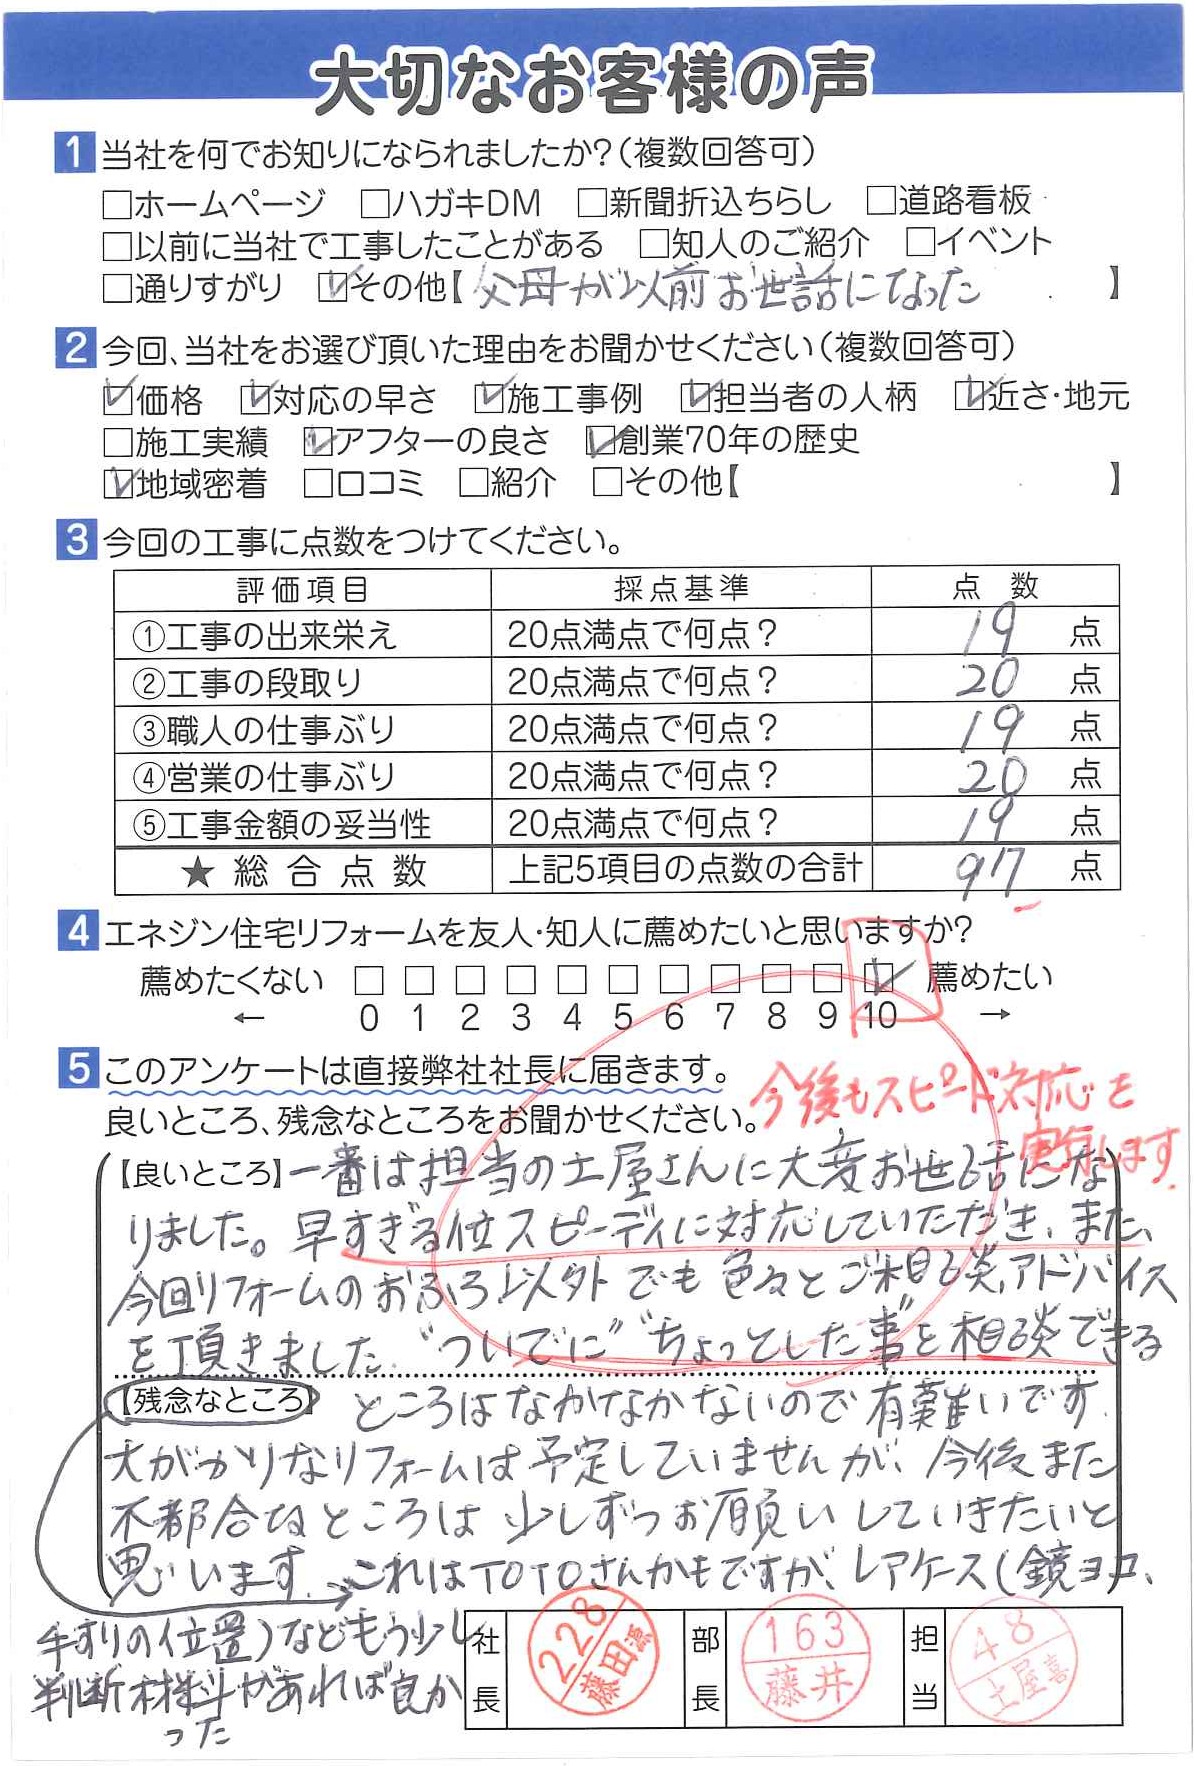 大切なお客様の声
1 当社を何でお知りになられましたか?(複数回答可)
□ホームページ □ハガキDM □新聞折込ちらし □道路看板
□以前に当社で工事したことがある □知人のご紹介 □イベント
□通りすがり ☑その他【父母が以前お世話になった】
2 今回、当社をお選び頂いた理由をお聞かせください(複数回答可)
☑価格 ☑対応の早さ ☑施工事例 ☑担当者の人柄 ☑近さ・地元
□施工実績 ☑アフターの良さ ☑創業70年の歴史
☑地域密着 □口コミ □紹介 □その他【 】
3 今回の工事に点数をつけてください。
評価項目 採点基準 点数
①工事の出来栄え 20点満点で何点? 19点
②工事の段取り 20点満点で何点? 20点
③職人の仕事ぶり 20点満点で何点? 19点
④営業の仕事ぶり 20点満点で何点? 20点
⑤工事金額の妥当性 20点満点で何点? 19点
★総合点数 上記5項目の点数の合計 97点
4 エネジン住宅リフォームを友人・知人に薦めたいと思いますか?
薦めたくない □ □ □ □ □ □ □ □ □ □ ☑ 薦めたい
← 0 1 2 3 4 5 6 7 8 9 10 →
5 このアンケートは直接弊社社長に届きます。
良いところ、残念なところをお聞かせください。
今後もスピード対応を
実行します.
【良いところ】一番は担当の土屋さんに大変お世話にな
りました。早すぎる位スピーディに対応していただき、また、
今回リフォームのおふろ以外でも色々とご相談,アドバイス
を頂きました."ついでに""ちょっとした事"を相談できる
【残念なところ】 ところはなかなかないので有難いです.
大がかりなリフォームは予定していませんが、今後また
不都合なところは少しずつお願いしていきたいと
思います. これはTOTOさんかもですが、レアケース(鏡ヨコ、
手すりの位置)などもう少し
判断材料があれば良か
った
社長 228 藤田濤
部長 163 藤井
担当 48 土屋喜